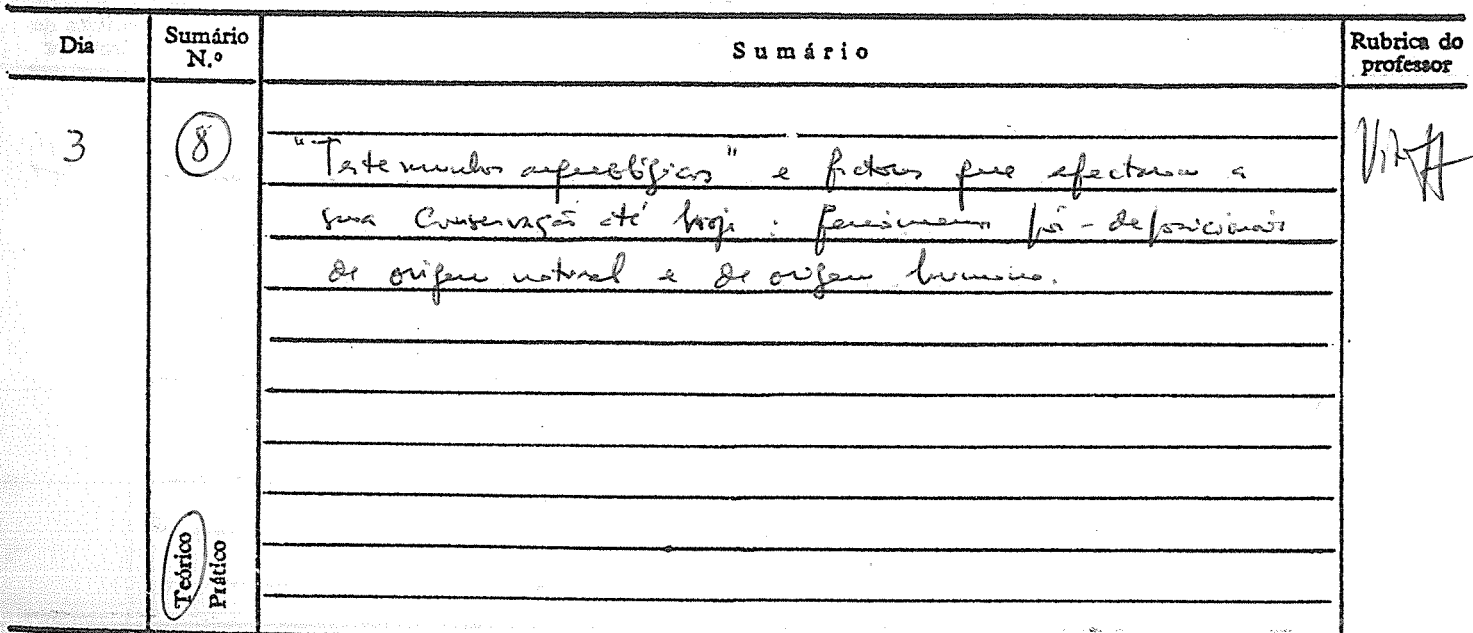 Dia
Sumário N.º
Sumário
Rubrica do professor
3
8
"Testemunhos arqueológicos" e factores que afectaram a
sua conservação até hoje: fenómenos pós-deposicionais
de origem natural e de origem humana.
Teórico
Prático